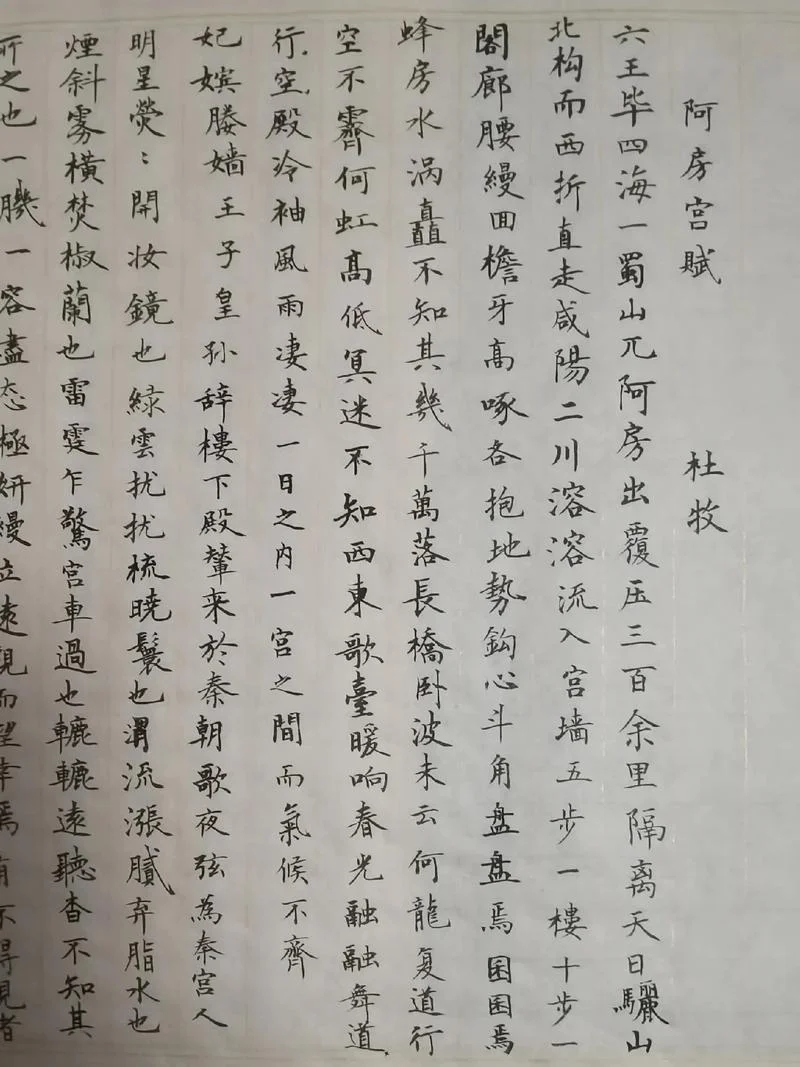 阿房宫赋 杜牧
六王毕四海一蜀山兀阿房出覆压三百余里隔离天日驪山
北构而西折直走咸陽二川溶溶流入宫墙五步一樓十步一
閣廊腰縵回檐牙高啄各抱地勢鈎心斗角盘盘焉囷囷焉
蜂房水涡矗不知其幾千萬落長橋卧波未云何龍复道行
空不霽何虹高低冥迷不知西東歌臺暖响春光融融舞道
行空殿冷袖風雨凄凄一日之内一宫之間而氣候不齊
妃嫔媵嫱王子皇孙辞樓下殿輦来於秦朝歌夜弦為秦宫人
明星熒：開妆鏡也緑雲扰扰梳曉鬟也渭流漲膩弃脂水也
煙斜雾横焚椒蘭也雷霆乍驚宫車過也轆轆遠聽杳不知其
所之也一肌一容盡态極妍縵立遠視而望幸焉有不得見者